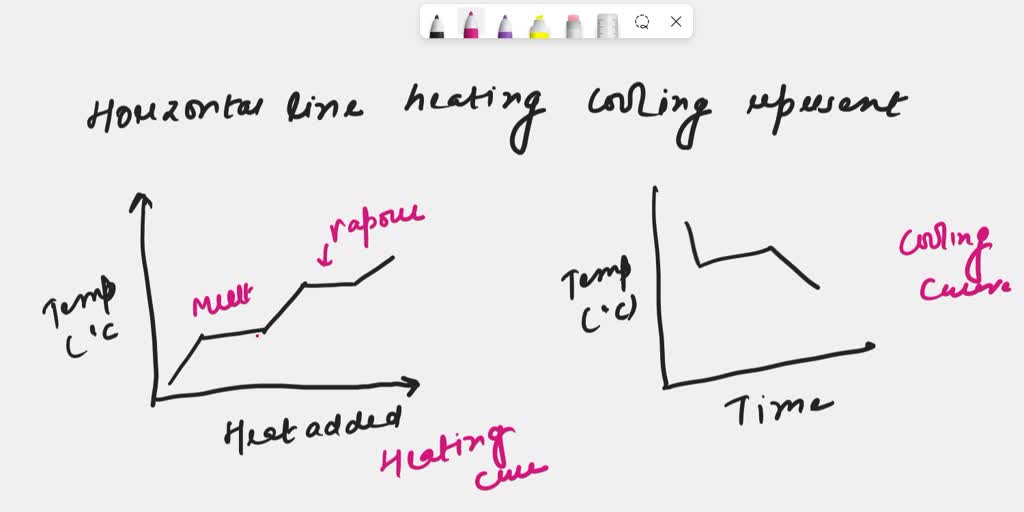 Horizontal line heating cooling represent
vapour
melt
Temp
(°C
Heat added
Heating
curve
Temp
(°C)
Time
Cooling
Curve